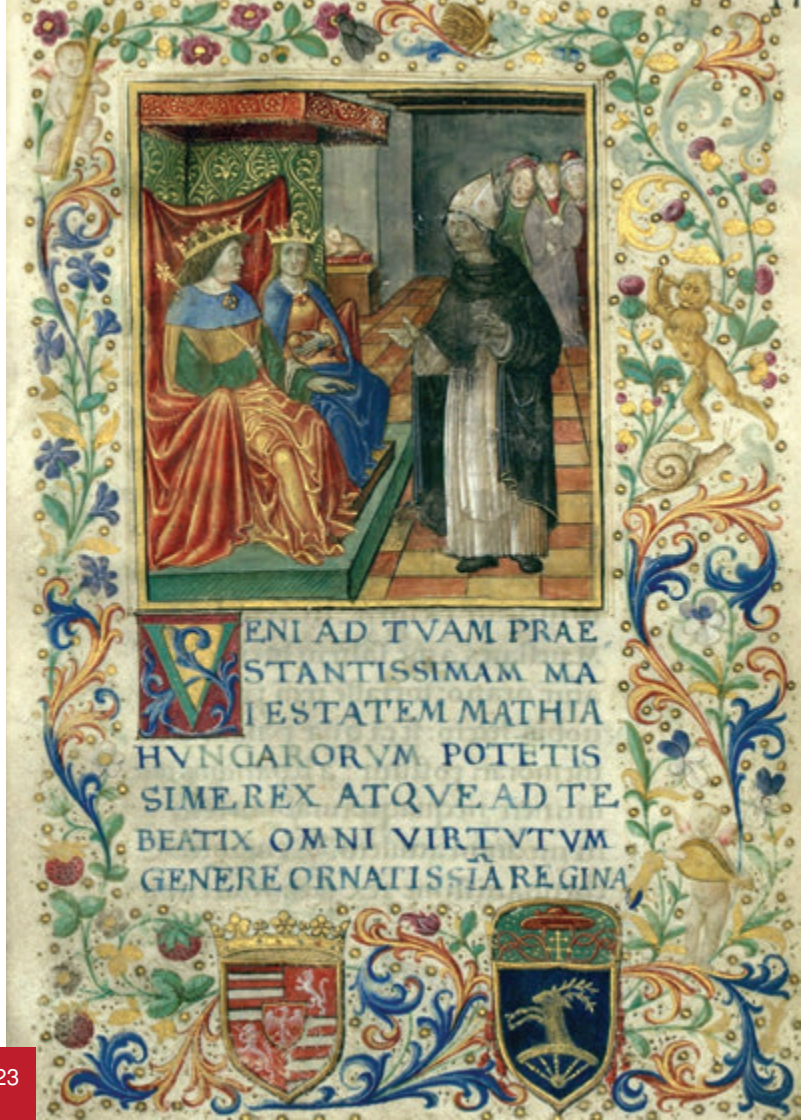 VENI AD TVAM PRAE
STANTISSIMAM MA
IESTATEM MATHIA
HVNGARORVM POTETIS
SIME REX ATQVE AD TE
BEATIX OMNI VIRTVTVM
GENERE ORNATISSIA REGINA
23